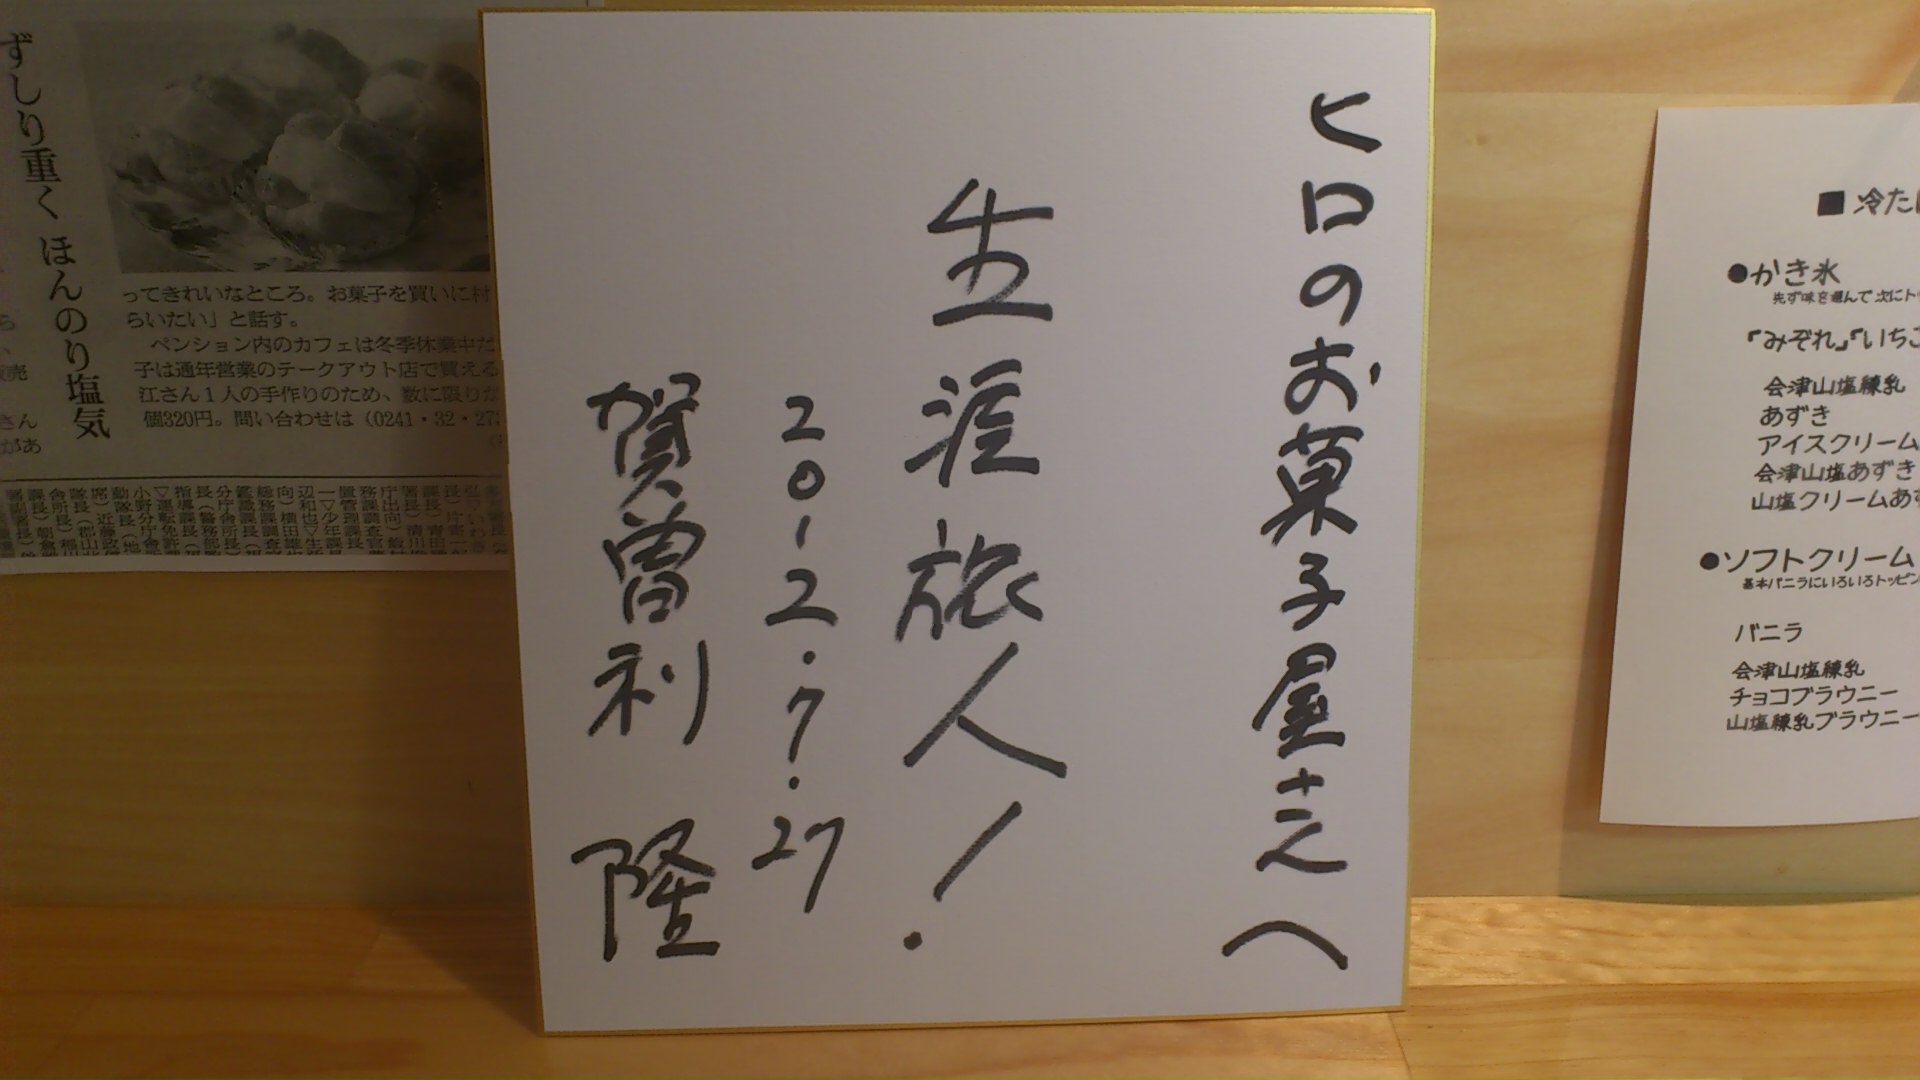 ヒロのお菓子屋さんへ
生涯旅人!
2012.7.27
賀曽利 隆
ずしり重く ほんのり塩気
ってきれいなところ。お菓子を買いに村
らいたい」と話す。
ペンション内のカフェは冬季休業中だ
子は通年営業のテークアウト店で買える
江さん1人の手作りのため、数に限りが
個320円。問い合わせは(0241・32・27
■冷た
●かき氷
先ず味を選んで次にト
「みぞれ」「いちご
会津山塩練乳
あずき
アイスクリーム
会津山塩あずき
山塩クリームあず
●ソフトクリーム
基本バニラにいろいろトッピン
バニラ
会津山塩練乳
チョコブラウニー
山塩練乳ブラウニー